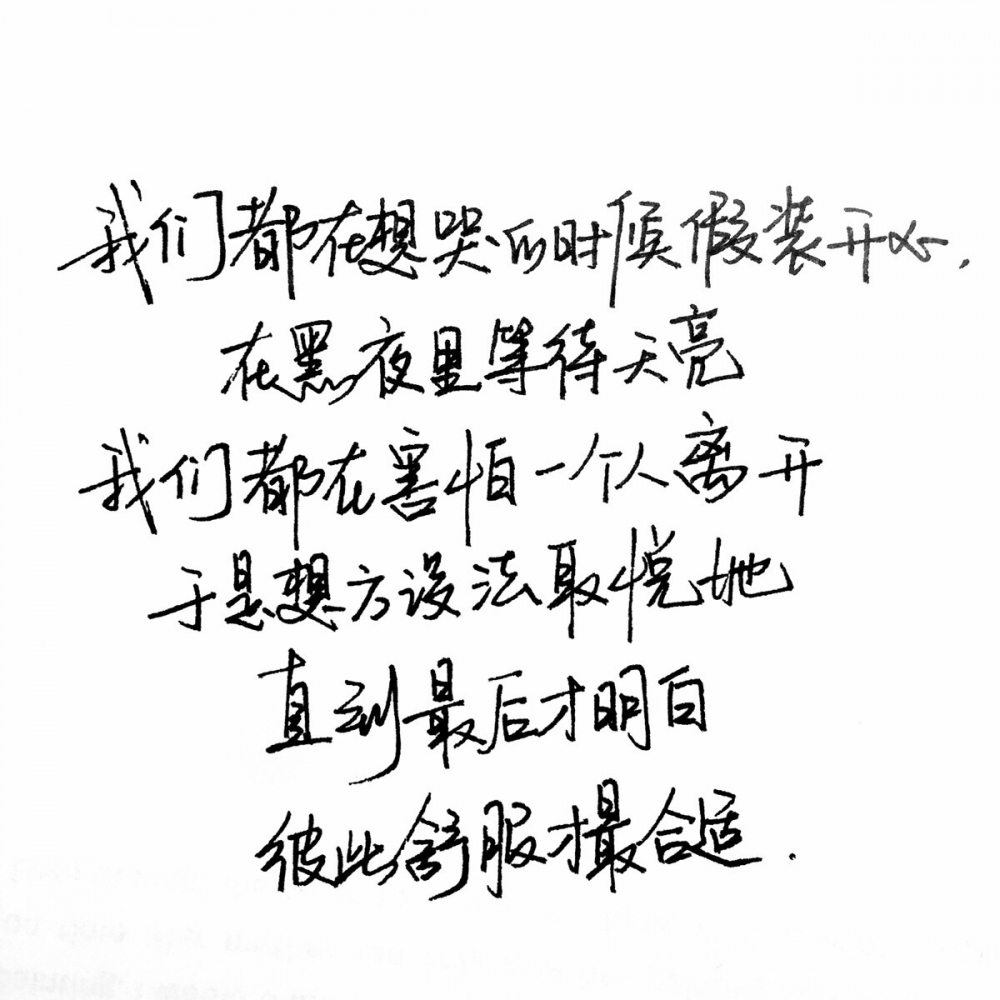 我们都在想哭的时候假装开心，
在黑夜里等待天亮
我们都在害怕一个人离开
于是想方设法取悦她
直到最后才明白
彼此舒服才最合适.